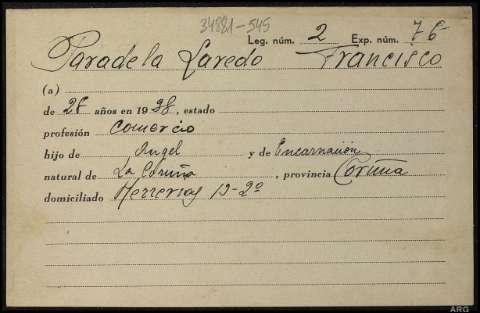 34881-545
Leg. núm. 2 Exp. núm. 76
Paradela Laredo Francisco
(a)
de 26 años en 1938, estado
profesión Comercio
hijo de Angel y de Encarnación
natural de La Coruña, provincia Coruña
domiciliado Herrerias 19-2º
ARG